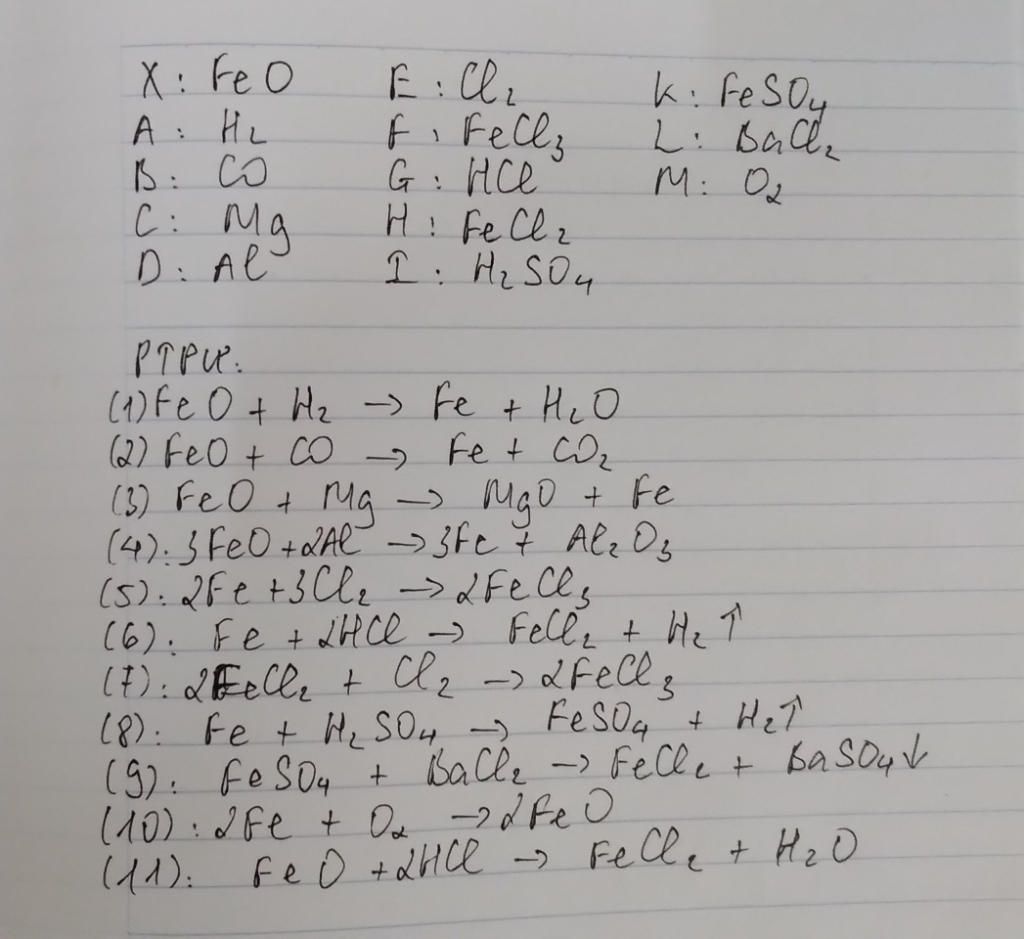 X: FeO E: Cl₂ K: FeSO₄
A: H₂ F: FeCl₃ L: BaCl₂
B: CO G: HCl M: O₂
C: Mg H: FeCl₂
D: Al I: H₂SO₄
PTPƯ:
(1) FeO + H₂ → Fe + H₂O
(2) FeO + CO → Fe + CO₂
(3) FeO + Mg → MgO + Fe
(4): 3FeO + 2Al → 3Fe + Al₂O₃
(5): 2Fe + 3Cl₂ → 2FeCl₃
(6): Fe + 2HCl → FeCl₂ + H₂↑
(7): 2FeCl₂ + Cl₂ → 2FeCl₃
(8): Fe + H₂SO₄ → FeSO₄ + H₂↑
(9): FeSO₄ + BaCl₂ → FeCl₂ + BaSO₄↓
(10): 2Fe + O₂ → 2FeO
(11): FeO + 2HCl → FeCl₂ + H₂O